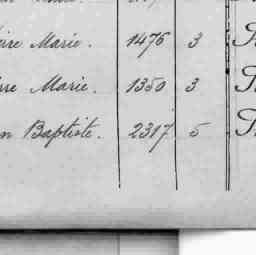 Marie. 1476 3
Marie. 1350 3
Baptiste. 2317 5